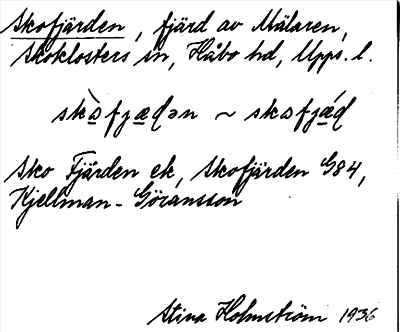 Skofjärden, fjärd av Mälaren,
Skoklosters sn, Håbo hd, Upps. l.
skòfjædən ~ skofjǽd
Sko Fjärden ek, Skofjärden G84,
Kjellman-Göransson
Stina Holmström 1936